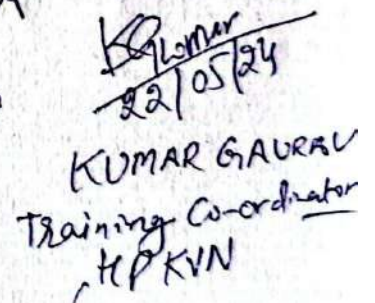 KGKumar
22/05/24
KUMAR GAURAV
Training Co-ordinator
HPKVN